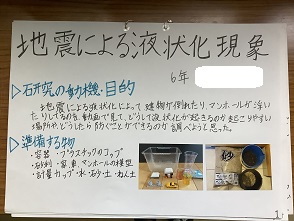 地震による液状化現象
6年
▷研究の動機・目的
地震による液状化によって建物が倒れたり、マンホールが浮い
たりしてるのを動画で見て、どうして液状化が起きるのか起こりやすい
場所や、どうしたら防ぐことができるのか調べようと思った。
▷準備する物
・容器 ・プラスチックのコップ
・砂利 ・家、車、マンホールの模型
・計量カップ・水・石・土・ねん土
1